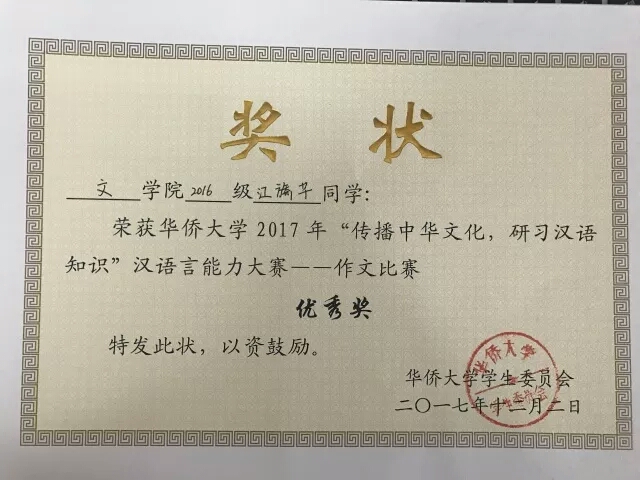 奖状
文学院2016级江瑜华同学:
荣获华侨大学2017年“传播中华文化，研习汉语
知识”汉语言能力大赛——作文比赛
优秀奖
特发此状，以资鼓励。
华侨大学学生委员会
二〇一七年十二月二日
华侨大学
学生委员会